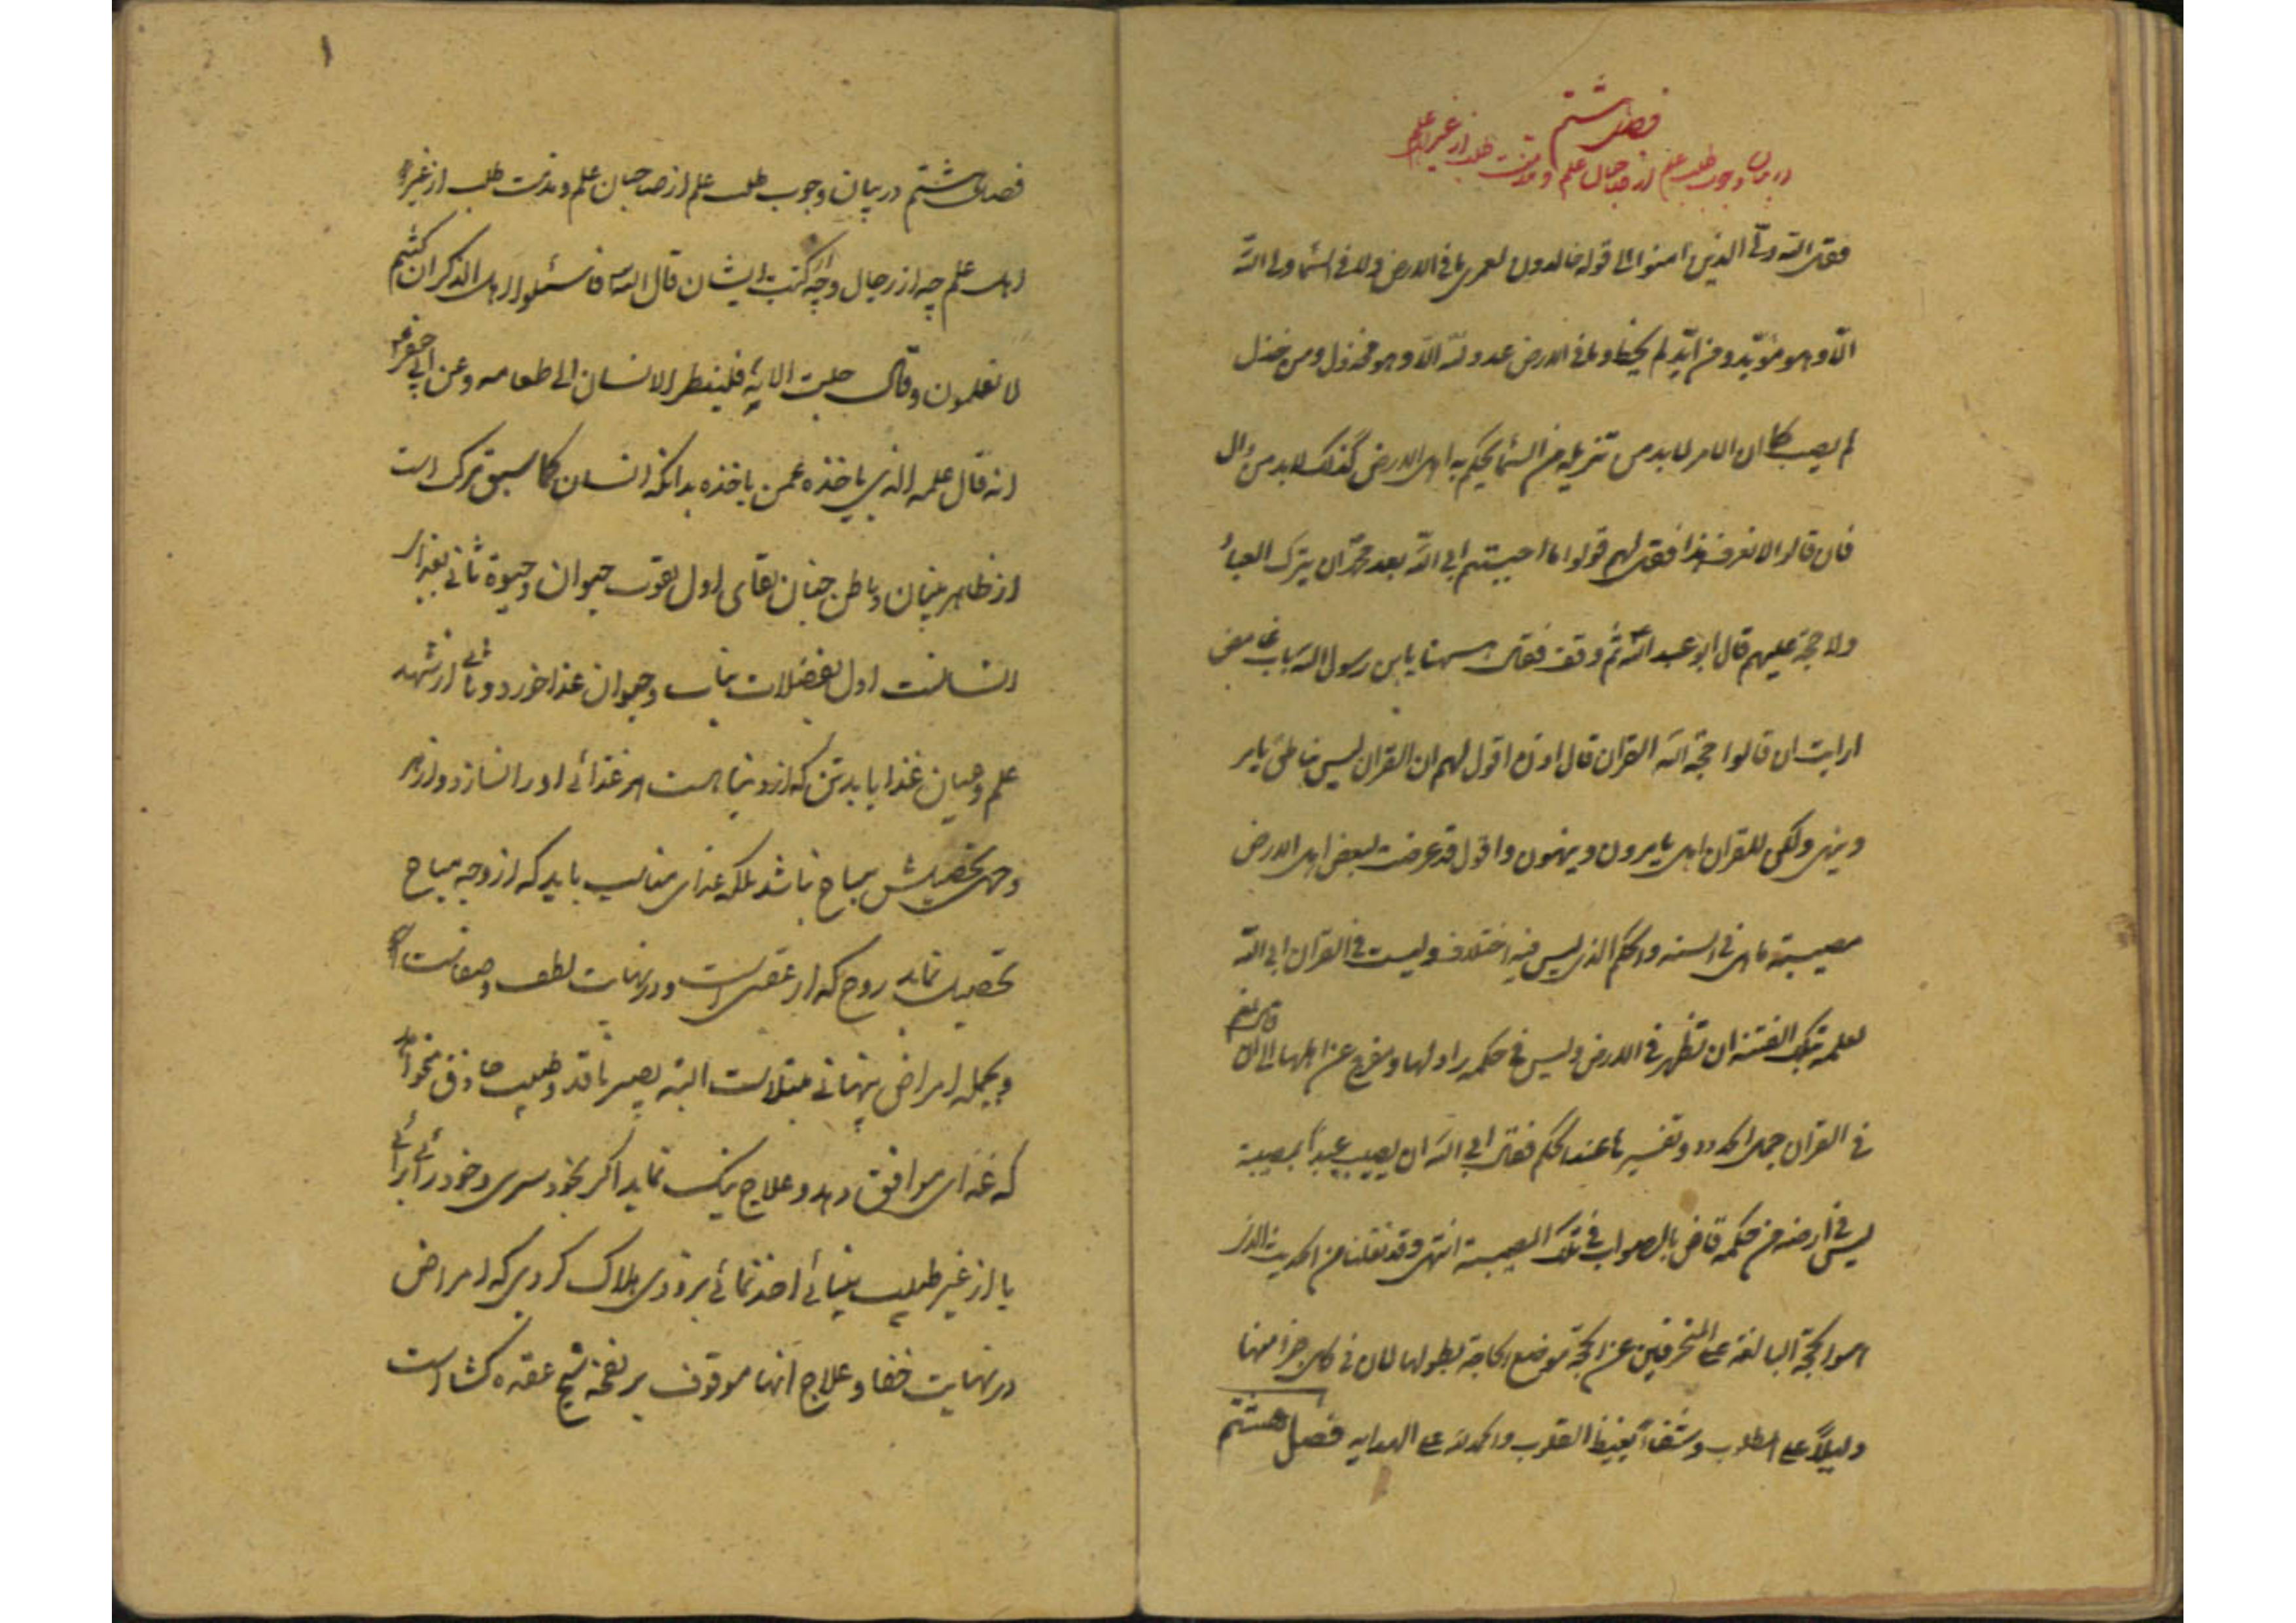 فصل هشتم
در بیان وجوب طلب علم از صاحبان علم و مذمت طلب از غیر اهل علم
فقال الله ولی الذین امنوا الی قوله خالدون لعمری ما فی الارض ولا فی السماء ولی الله
الا و هو مؤید و من اید لم یخط و ما فی الارض عدو لله الا و هو مخذول و من خذل
لم یصب کما ان الامر لابد من تنزیله من السماء یحکم به اهل الارض کذلک لابد من وال
فان قالوا لا نعرف هذا فقل لهم قولوا ما احببتم ابی الله بعد محمد ان یترک العباد
ولا حجة علیهم قال ابو عبد الله ثم وقف فقال هیهنا یابن رسول الله باب غامض
ارایت ان قالوا حجة الله القران قال اذن اقول لهم ان القران لیس بناطق یامر
و ینهی ولکن للقران اهل یامرون و ینهون و اقول قد عرضت لبعض اهل الارض
مصیبة ما هی فی السنه والحکم الذی لیس فیه اختلاف ولیست فی القران ابی الله
لعلمه بتلک الفتنه ان تظهر فی الارض ولیس فی حکمه راد لها و مفرج عن اهلها الی ان قال نعم
فی القران جمل الحدود و تفسیرها عند الحکم فقال ابی الله ان یصیب عبدا بمصیبة
لیس فی ارضه من حکمه قاض بالصواب فی تلک المصیبة انتهی وقد نقلنا من الحدیث الذی
هو الحجة البالغة علی المنحرفین عن الحجة موضع الحاجة بطولها لان فی کل جزء منها
دلیلاً علی المطلوب و شفاء لغیظ القلوب والحمد لله علی الهدایه فصل هشتم
۱
فصل هشتم در بیان وجوب طلب علم از صاحبان علم و مذمت طلب از غیر
اهل علم چه از رجال و چه از کتب ایشان قال الله فاسئلوا اهل الذکر ان کنتم
لا تعلمون و قال جلت الایه فلینظر الانسان الی طعامه و عن ابی جعفر
انه قال علمه الذی یاخذه عمن یاخذه بدانکه انسان کما سبق مرکب است
از ظاهر بنیان و باطن جنان بقای اول بقوت حیوان و حیوة ثانی بغذای
انسانست اول بفضلات نبات و حیوان غذا خورد و ثانی از شهد
علم و جان غذا یابد تن که از دنیا است هر غذائی او را نسازد و از هر
وجهی تحصیلش مباح نباشد بلکه غذای مناسب باید که از وجه مباح
تحصیل نماید روح که از عقبی است و در نهایت لطف و صفاست
و بجمله امراض پنهانی مبتلاست البته بصیر ناقد و طبیب حاذق میخواهد
که غذای موافق دهد و علاج نیک نماید اگر بخود سری و خود رائی
یا از غیر طبیب بینائی اخذ نمائی بزودی هلاک گردی که امراض
در نهایت خفا و علاج آنها موقوف بر نفخه مسیح عقده گشا است